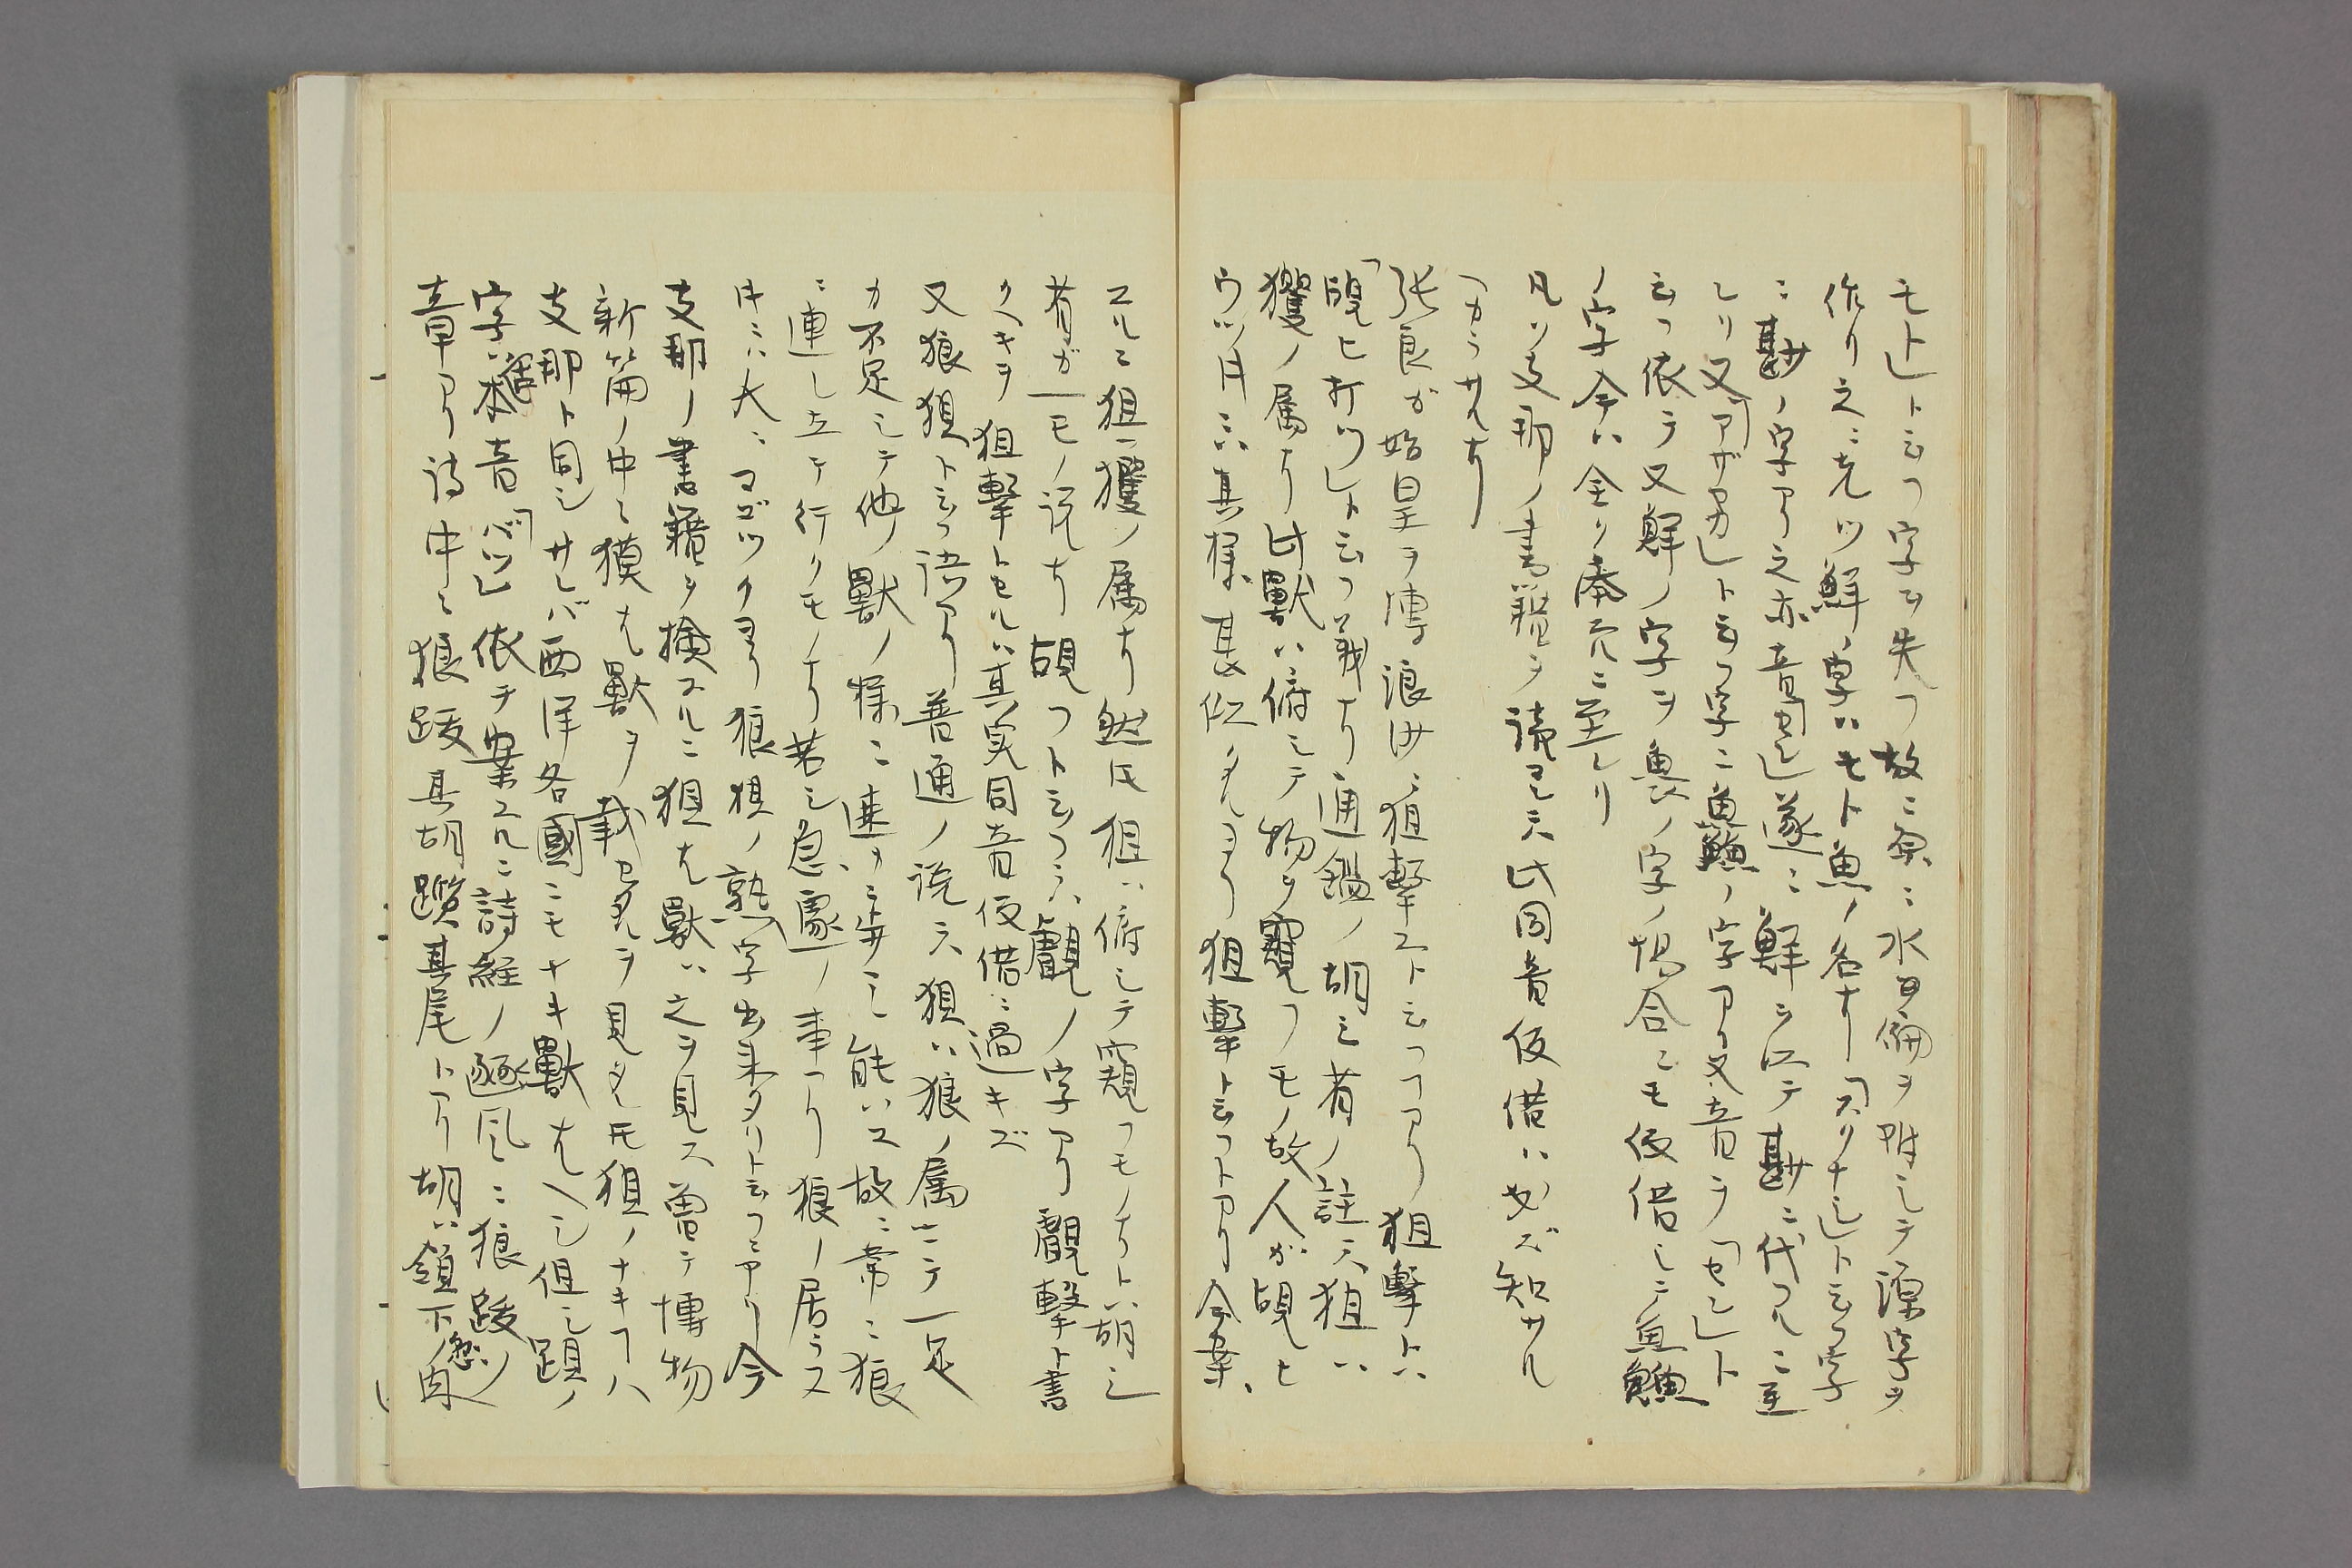 モト」ト云フ字ヲ失フ故ニ原ニ水日偏ヲ附シテ源字ヲ
作リ之ニ充ツ鮮ノ字ハモト魚ノ名ナリ「スクナシ」ト云フ字
ニ尠ノ字アリ之亦音セン」遂ニ鮮ヲ以テ尠ニ代フルニ至
レリ又「アザヤカ」ト云フ字ニ鱻ノ字アリ又音ヲ「セン」ト
云フ依テ又鮮ノ字ヲ鱻ノ字ノ場合ニモ仮借シテ魚鱻
ノ字今ハ全ク廃穴ニ至レリ
凡ソ支那ノ書籍ヲ読マンニハ此同音仮借ハ必ズ知サル
フカラサルナリ
張良ガ始皇ヲ博浪沙ニ狙撃スト云フコアリ狙撃トハ
「覗ヒ打ツ」ト云フ義ナリ通鑑ノ胡三省ノ註ニハ狙ハ
玃ノ属ナリ此獣ハ俯シテ物ヲ窺フモノ故人ガ覗ヒ
ウツ片ニハ其様甚似タルヨリ狙撃ト云フトアリ今案
スルニ狙玃ノ属ナリ然モ狙ハ俯シテ窺フモノナトハ胡三
省ガ一モノ説ナリ覗フト云フニハ覰ノ字アリ覰撃ト書
クヘキヲ狙撃トセルハ其実同音仮借ニ過キズ
又狼狽ト云フ語アリ普通ノ説ニハ狽ハ狼ノ属ニテ一足
カ不足シテ他ノ獣ノ様ニ速カニ歩ミ能ハス故ニ常ニ狼
ニ連レ立テ行クモノナリ若シ急遽ノ事アリ狼ノ居ラス
片ニハ大ニマゴツクヨリ狼狽ノ熟字出来タリト云フニアリ今
支那ノ書籍ヲ検スルニ狽ナル獣ハ之ヲ見ス曽テ博物
新篇ノ中ニ獏ナル獣ヲ載セタルヲ見タルモ狽ノナキコハ
支那ト同シサレバ西洋各国ニモナキ獣ナルヘシ但シ䟺ノ
字ハ本音「バツ」依テ案スルニ詩経ノ豳風ニ狼跋ノ
章アリ詩中ニ狼跋其胡躓其尾トアリ胡ハ領下ノ肉